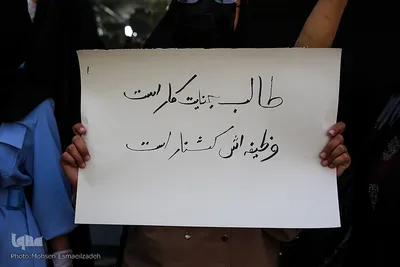 طالب جنایت کار است
وظیفه اش کشتار است
ایکنا
Photo: Mohsen Esmaeilzadeh